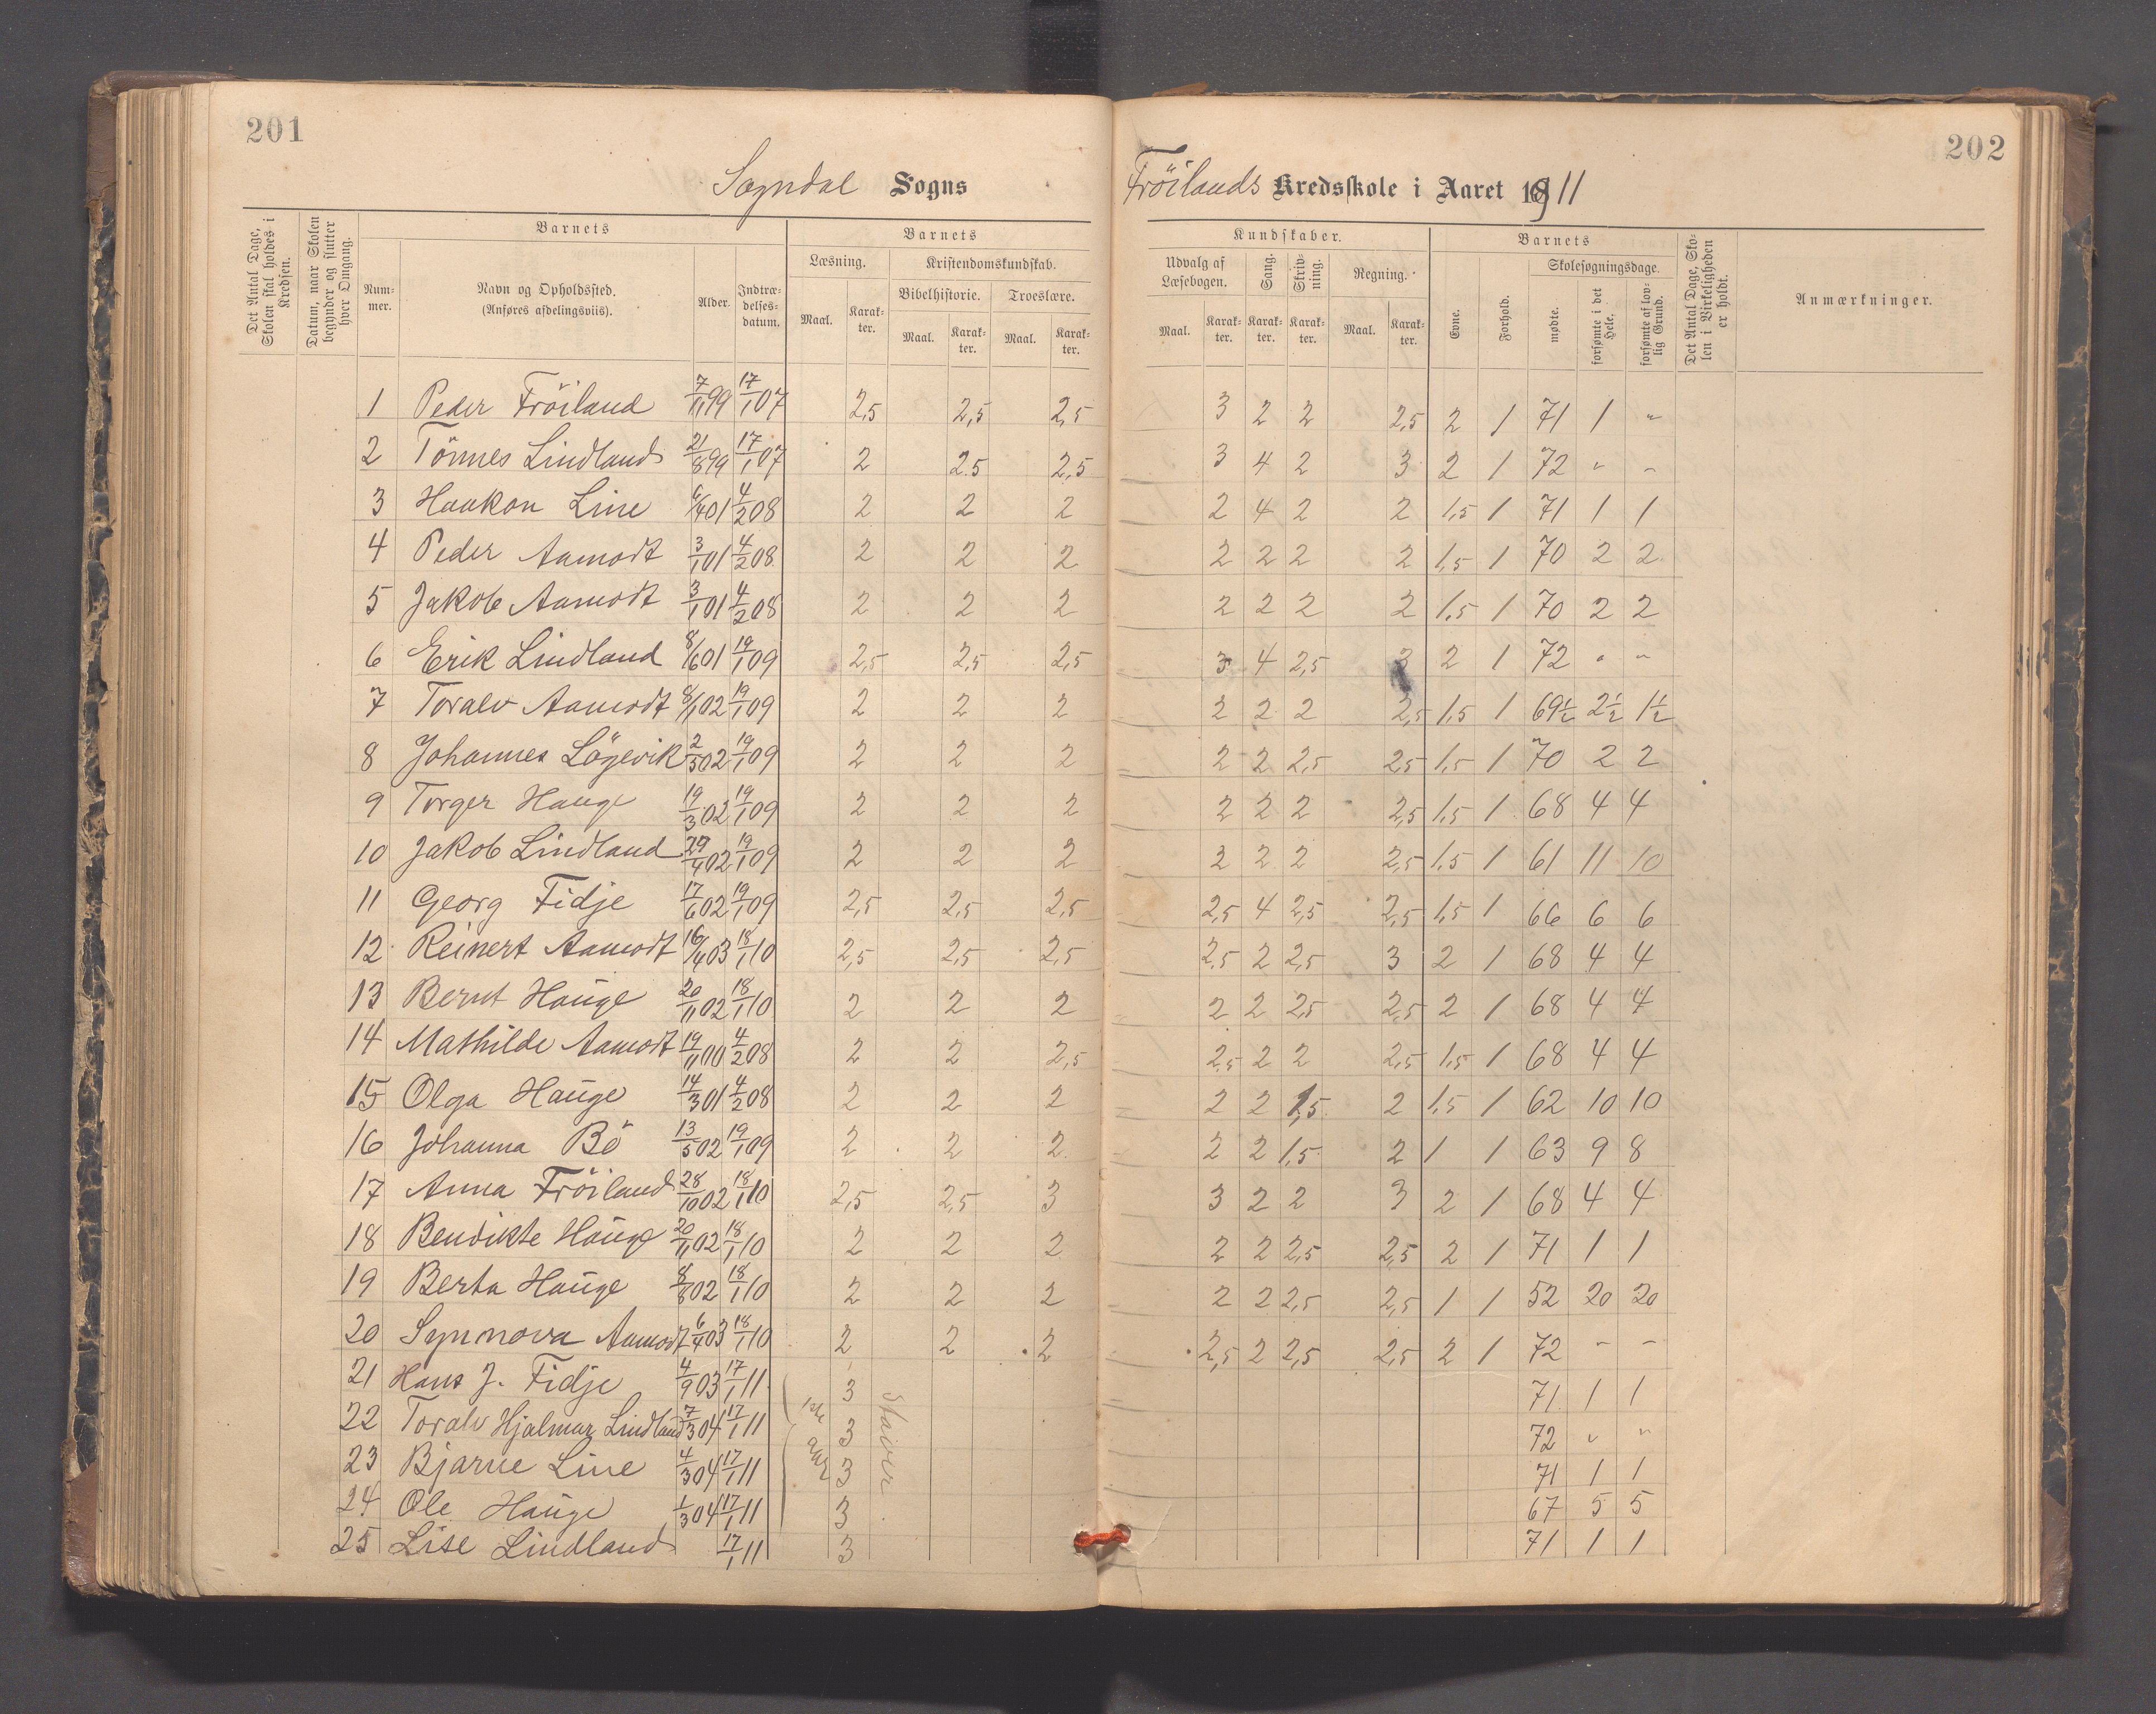 201
202
Sogndal Sogns
Fröilands Kredsskole i Aaret 1911
Det Antal Dage, Skolen skal holdes i Kredsen.
Datum, naar Skolen begynder og slutter hver Omgang.
Barnets
Num-mer.
Navn og Opholdssted.
(Anføres afdelingsviis).
Alder.
Indtræ-delses-datum.
Barnets
Læsning.
Kristendomskundskab.
Bibelhistorie. Troeslære.
Maal. Karak-ter. Maal. Karak-ter. Maal. Karak-ter.
Kundskaber.
Udvalg af Læsebogen. Sang. Skriv-ning. Regning.
Maal. Karak-ter. Karak-ter. Karak-ter. Maal. Karak-ter.
Barnets
Evne. Forhold.
Skolesøgningsdage.
mødte. forsømte i det Hele. forsømte af lov-lig Grund.
Det Antal Dage, Sko-len i Virkeligheden er holdt.
Anmærkninger.
1 Peder Fröiland 7/11 99 17/1 07 2,5 2,5 2,5 3 2 2 2,5 2 1 71 1 "
2 Tönnes Lindland 21/8 99 17/1 07 2 2.5 2,5 3 4 2 3 2 1 72 " "
3 Haakon Line 6/4 01 4/2 08 2 2 2 2 4 2 2 1,5 1 71 1 1
4 Peder Aamodt 3/1 01 4/2 08 2 2 2 2 2 2 2 1,5 1 70 2 2
5 Jakob Aamodt 3/1 01 4/2 08 2 2 2 2 2 2 2 1,5 1 70 2 2
6 Erik Lindland 8/6 01 19/1 09 2,5 2,5 2,5 3 4 2,5 3 2 1 72 " "
7 Toralv Aamodt 8/1 02 19/1 09 2 2 2 2 2 2 2,5 1,5 1 69½ 2½ 1½
8 Johannes Lögevik 2/5 02 19/1 09 2 2 2 2 2 2,5 2,5 1,5 1 70 2 2
9 Torger Hauge 19/3 02 19/1 09 2 2 2 2 2 2 2,5 1,5 1 68 4 4
10 Jakob Lindland 29/4 02 19/1 09 2 2 2 2 2 2 2,5 1,5 1 61 11 10
11 Georg Fidje 17/6 02 19/1 09 2,5 2,5 2,5 2,5 4 2,5 2,5 1,5 1 66 6 6
12 Reinert Aamodt 16/4 03 18/1 10 2,5 2,5 2,5 2,5 2 2,5 3 2 1 68 4 4
13 Bernt Hauge 20/11 02 18/1 10 2 2 2 2 2 2,5 2,5 2 1 68 4 4
14 Mathilde Aamodt 19/11 00 4/2 08 2 2 2,5 2,5 2 2 2,5 1,5 1 68 4 4
15 Olga Hauge 14/3 01 4/2 08 2 2 2 2 2 1,5 2 1,5 1 62 10 10
16 Johanna Bö 13/5 02 19/1 09 2 2 2 2 2 1,5 2 1 1 63 9 8
17 Anna Fröiland 28/10 02 18/1 10 2,5 2,5 3 3 2 2 3 2 1 68 4 4
18 Bendikte Hauge 20/11 02 18/1 10 2 2 2 2 2 2,5 2,5 2 1 71 1 1
19 Berta Hauge 8/8 02 18/1 10 2 2 2 2 2 2,5 2,5 1 1 52 20 20
20 Synnova Aamodt 6/4 03 18/1 10 2 2 2 2,5 2 2,5 2,5 2 1 72 - -
21 Hans J. Fidje 4/9 03 17/1 11 3 71 1 1
22 Toralv Hjalmar Lindland 7/3 04 17/1 11 3 72 " "
23 Bjarne Line 4/3 04 17/1 11 3 71 1 1
24 Ole Hauge 1/3 04 17/1 11 3 67 5 5
25 Lise Lindland 17/1 11 3 71 1 1
1ste aar
Staver